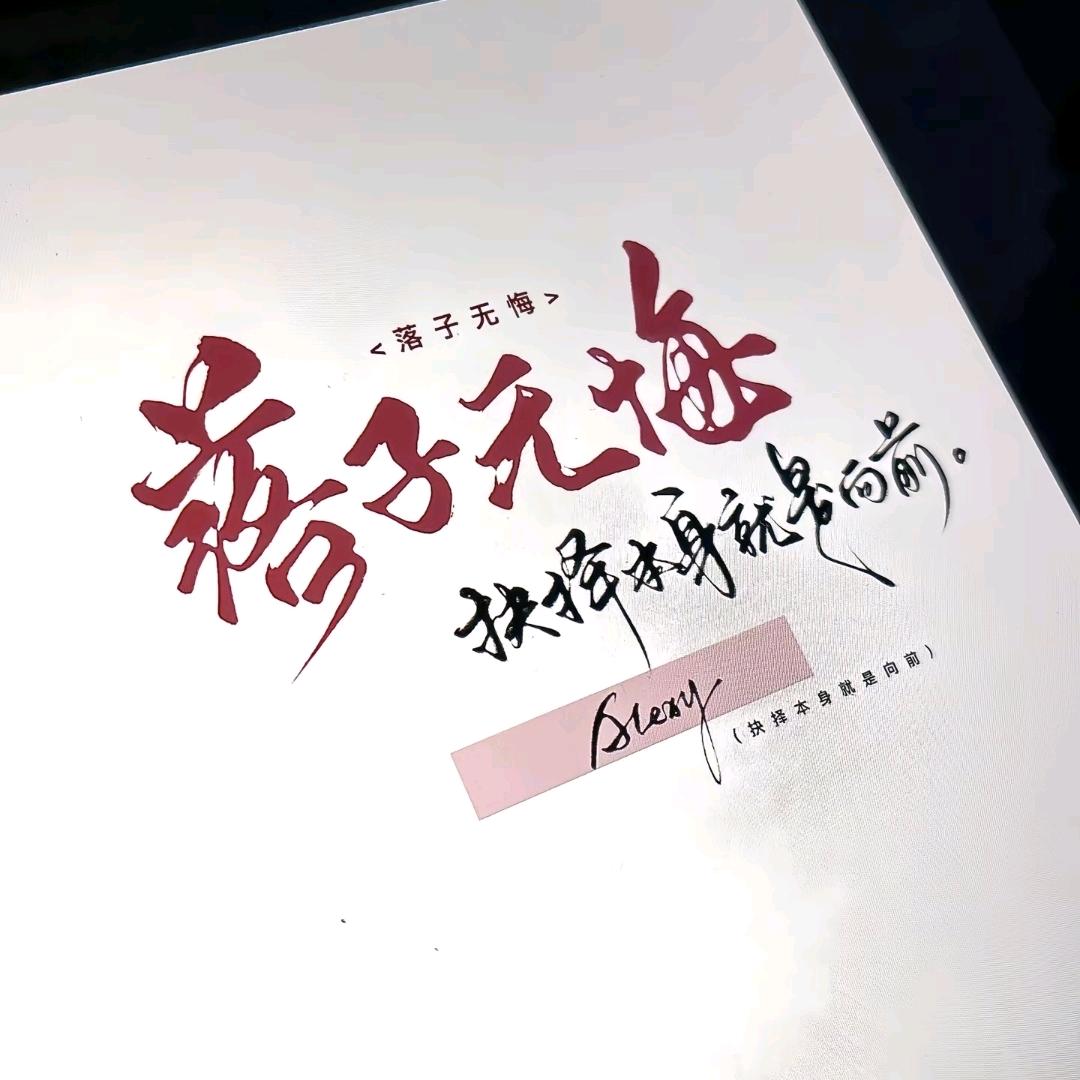 <落子无悔>
落子无悔
抉择本身就是向前。
Alexy
(抉择本身就是向前)